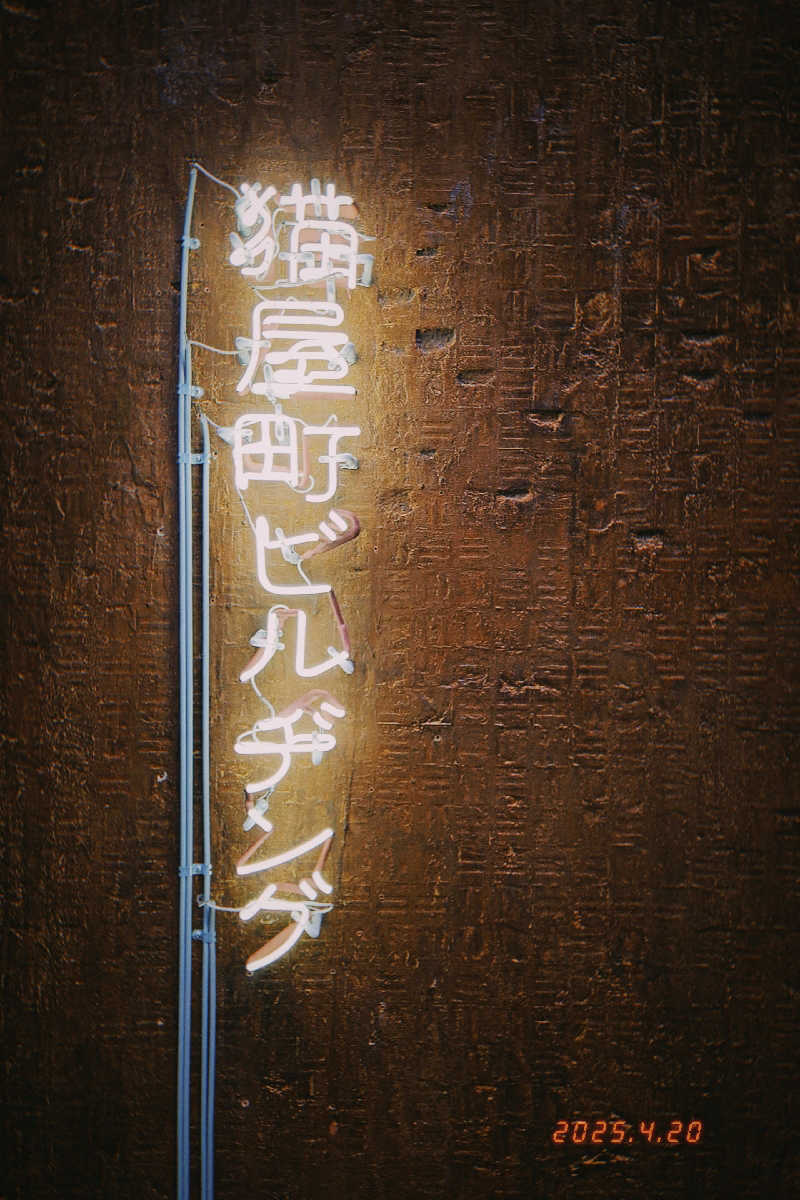 猫屋町ビルヂング
2025.4.20